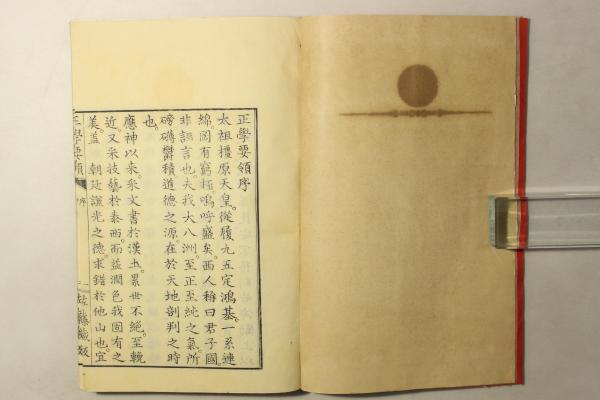 正學要領序
太祖橿原天皇。從履九五定鴻基。一系連
綿。罔有窮極。嗚呼盛矣。西人稱曰君子國。
非諛言也。夫我大八洲。至正至純之氣。所
磅礴鬱積。道德之源。在於天地剖判之時
也。
應神以來。采文書於漢土。累世不絕。至輓
近。又采技藝於泰西。而益潤色我固有之
美。蓋 朝廷謙光之德。求錯於他山也。宜
正學要領
序
一